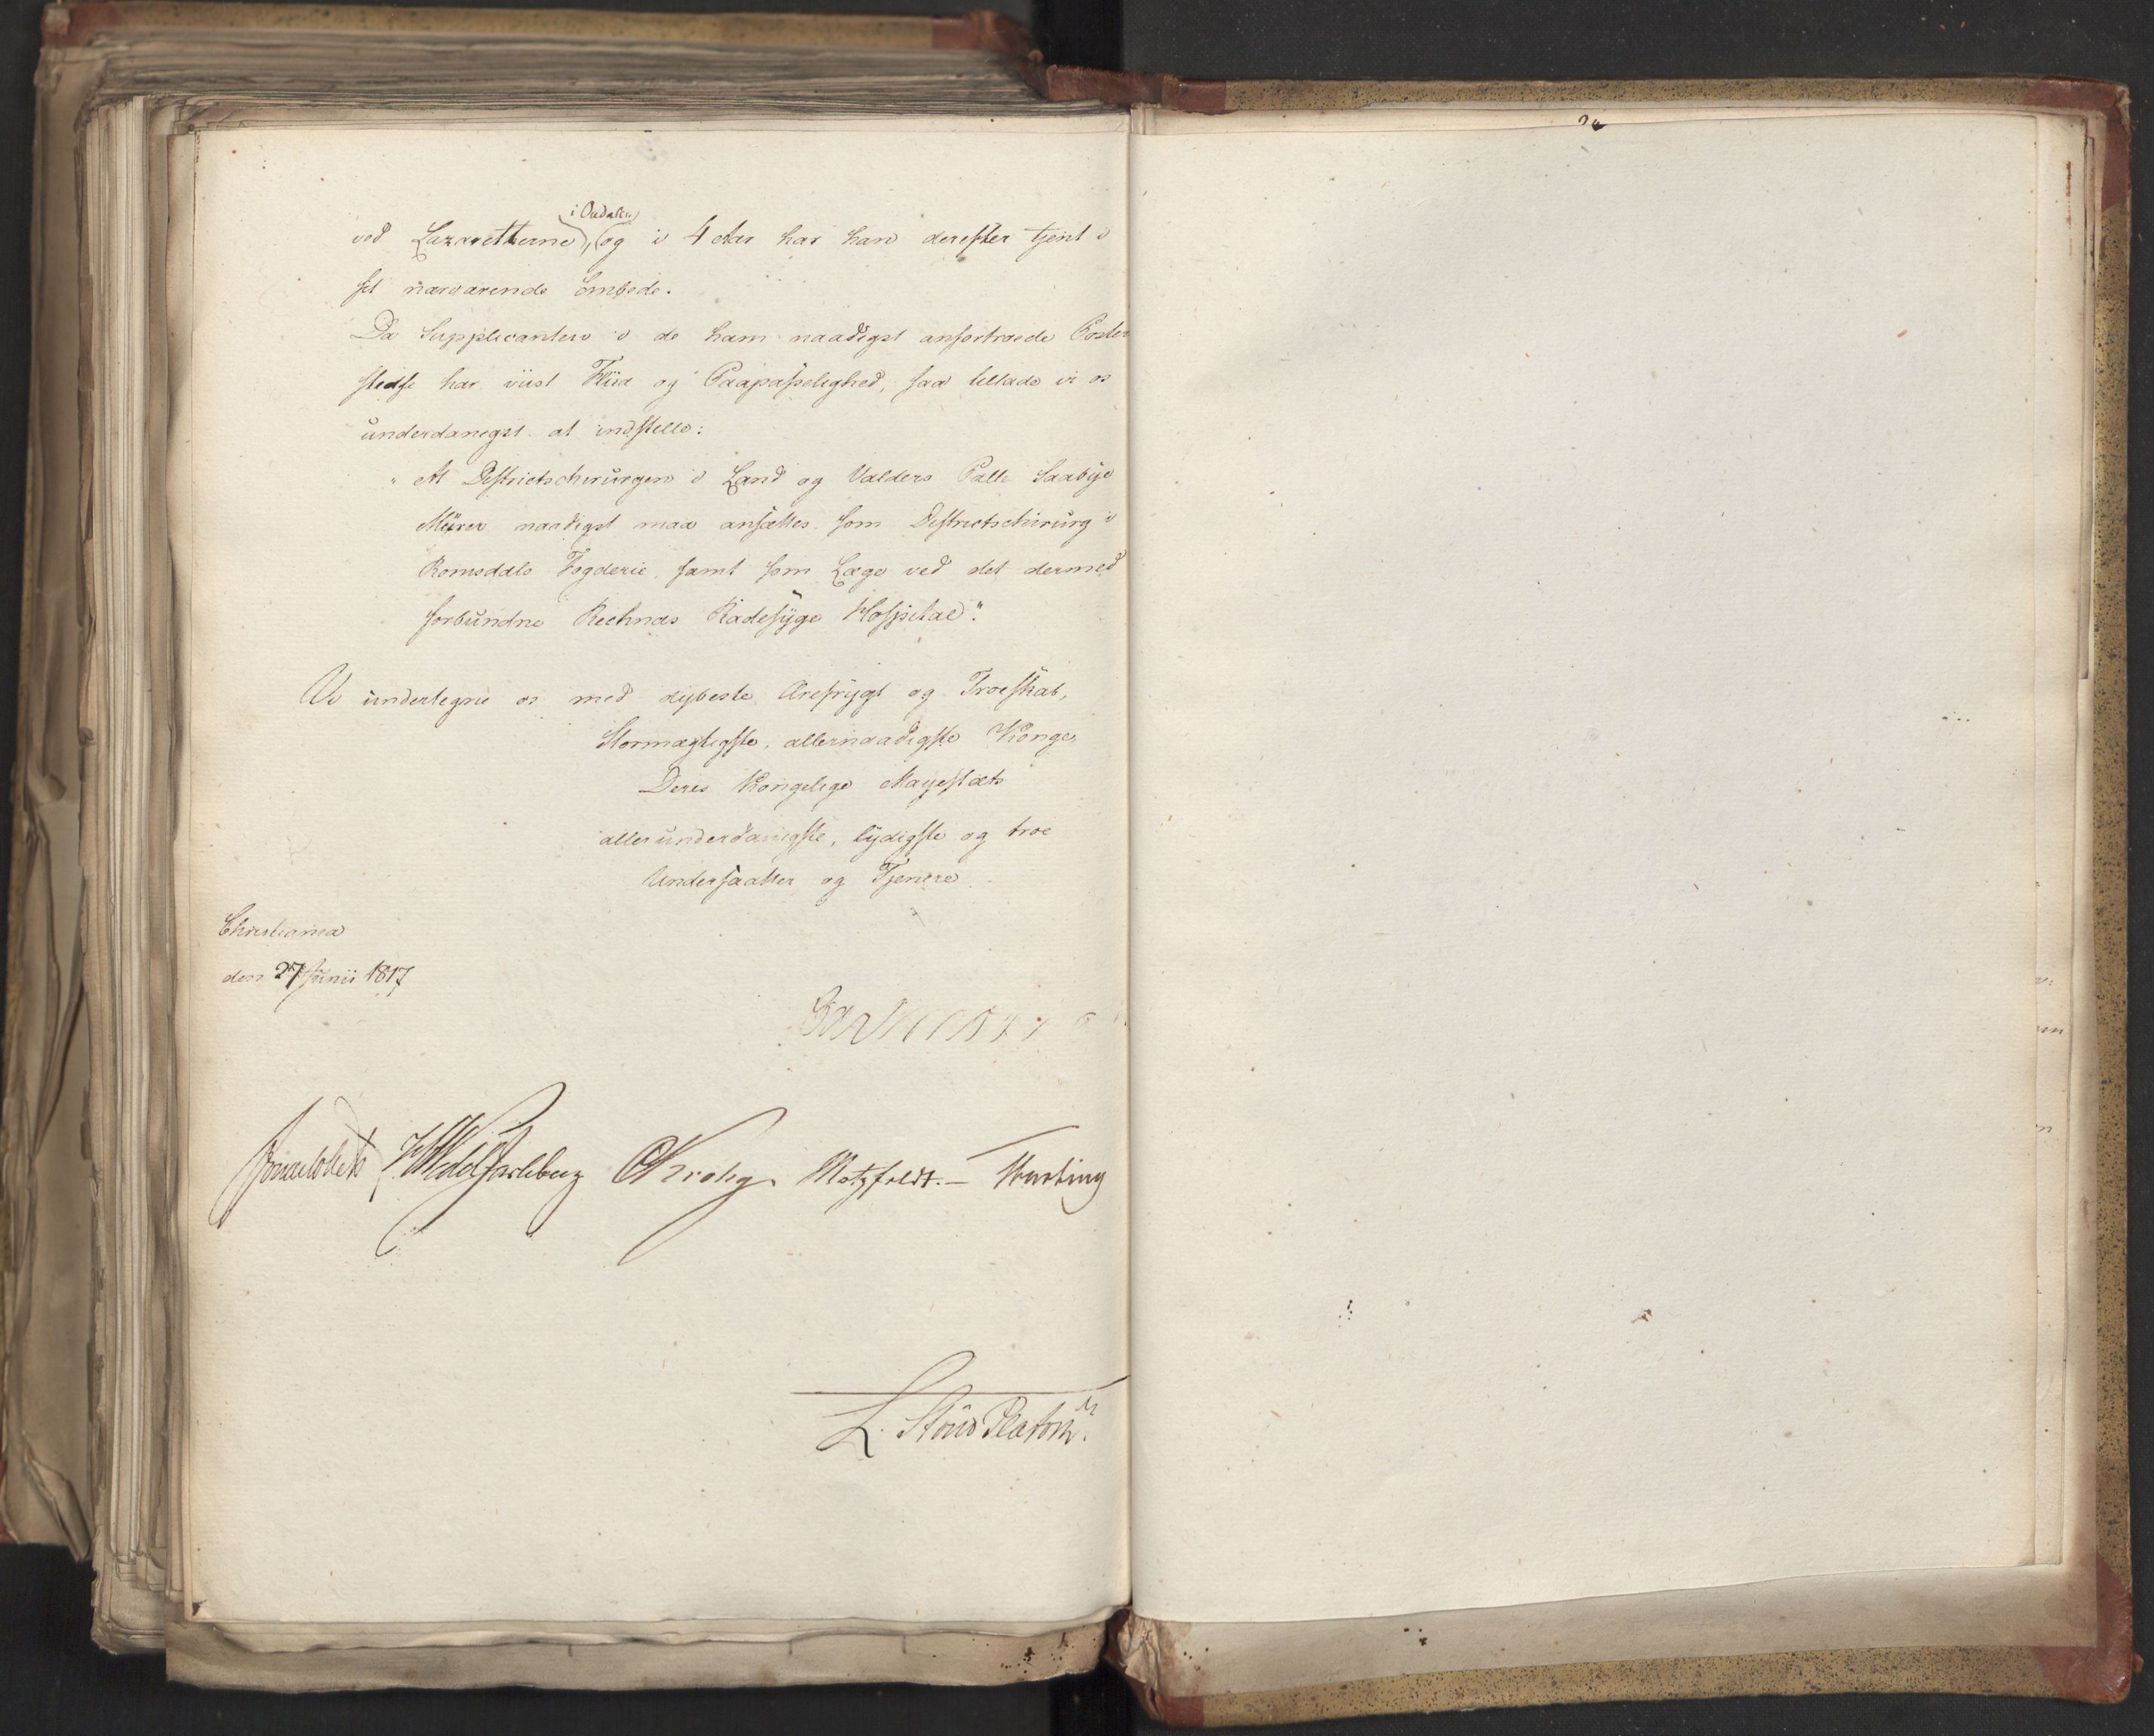 i Oudalen
ved Lazaretterne, og i 4 Aar har han derefter tjent i
sit nærværende Embede.
Da Supplicanten i de ham naadigst anfortroede Poster
stedse har viist Fliid og Paapasselighed, saa tillade vi os
underdanigst at indstille:
"At Districtschirurgen i Land og Valders Palle Saabye
Mürer naadigst maa ansættes som Districtschirurg i
Romsdals Fogderie, samt som Læge ved det dermed
forbundne Recknæs Radesyge Hospital".
Vi undertegne os med dybeste Ærefrygt og Troeskab,
Stormægtigste, allernaadigste Konge,
Deres Kongelige Majestæts
allerunderdanigste, lydigste og troe
Undersaatter og Tjenere
Christiania
den 27 Junii 1817
Jonas Collett HWedel Jarlsberg CKrohg. Motzfeldt.— Hvarbing
L. Stoud Platou.